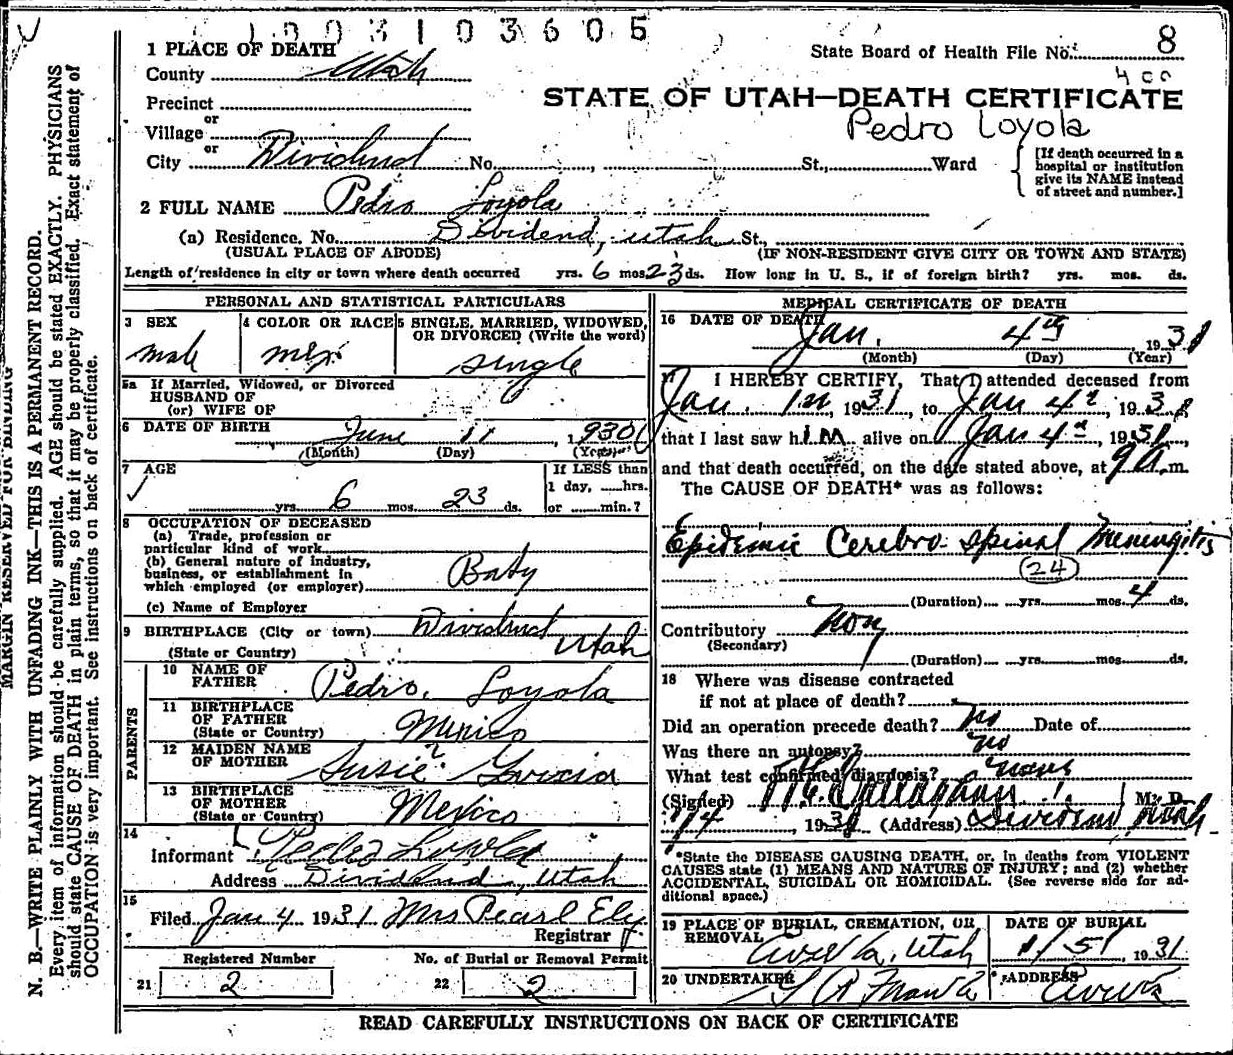 1003103605
1 PLACE OF DEATH
State Board of Health File No. 8
County Utah
400
Precinct
STATE OF UTAH—DEATH CERTIFICATE
or
Village
Pedro Loyola
or
City Dividend No. St., Ward
[If death occurred in a hospital or institution give its NAME instead of street and number.]
2 FULL NAME Pedro Loyola
(a) Residence. No. Dividend, Utah St.,
(USUAL PLACE OF ABODE) (IF NON-RESIDENT GIVE CITY OR TOWN AND STATE)
Length of residence in city or town where death occurred yrs. 6 mos. 23 ds. How long in U. S., if of foreign birth? yrs. mos. ds.
PERSONAL AND STATISTICAL PARTICULARS
3 SEX
male
4 COLOR OR RACE
mex
5 SINGLE, MARRIED, WIDOWED, OR DIVORCED (Write the word)
single
5a If Married, Widowed, or Divorced
HUSBAND OF
(or) WIFE OF
6 DATE OF BIRTH June 11, 1930
(Month) (Day) (Year)
7 AGE
yrs. 6 mos. 23 ds.
If LESS than
1 day, hrs.
or min.?
8 OCCUPATION OF DECEASED
(a) Trade, profession or
particular kind of work
(b) General nature of industry,
business, or establishment in
which employed (or employer) Baby
(c) Name of Employer
9 BIRTHPLACE (City or town) Dividend
(State or Country) Utah
PARENTS
10 NAME OF FATHER Pedro Loyola
11 BIRTHPLACE OF FATHER (State or Country) Mexico
12 MAIDEN NAME OF MOTHER Susie Garcia
13 BIRTHPLACE OF MOTHER (State or Country) Mexico
14
Informant Pedro Loyola
Address Dividend, Utah
15
Filed Jan 4 1931 Mrs Pearl Ely
Registrar
Registered Number No. of Burial or Removal Permit
21 2 22 2
MEDICAL CERTIFICATE OF DEATH
16 DATE OF DEATH
Jan. 4th 1931
(Month) (Day) (Year)
17 I HEREBY CERTIFY, That I attended deceased from
Jan. 1st, 1931, to Jan 4th, 1931
that I last saw him alive on Jan 4th, 1931,
and that death occurred, on the date stated above, at 9 A.m.
The CAUSE OF DEATH* was as follows:
Epidemic Cerebro-spinal Meningitis
(24)
(Duration) yrs. mos. 4 ds.
Contributory None
(Secondary)
(Duration) yrs. mos. ds.
18 Where was disease contracted
if not at place of death?
Did an operation precede death? No Date of
Was there an autopsy? No
What test confirmed diagnosis? None
(Signed) Callaghan M. D.
1/4, 1931 (Address) Dividend Utah
*State the DISEASE CAUSING DEATH, or, in deaths from VIOLENT
CAUSES state (1) MEANS AND NATURE OF INJURY; and (2) whether
ACCIDENTAL, SUICIDAL OR HOMICIDAL. (See reverse side for ad-
ditional space.)
19 PLACE OF BURIAL, CREMATION, OR REMOVAL
Eureka, Utah
DATE OF BURIAL
1/5 1931
20 UNDERTAKER
ADDRESS
Eureka
READ CAREFULLY INSTRUCTIONS ON BACK OF CERTIFICATE
MARGIN RESERVED FOR BINDING
N. B.—WRITE PLAINLY WITH UNFADING INK—THIS IS A PERMANENT RECORD.
Every item of information should be carefully supplied. AGE should be stated EXACTLY. PHYSICIANS
should state CAUSE OF DEATH in plain terms, so that it may be properly classified. Exact statement of
OCCUPATION is very important. See instructions on back of certificate.